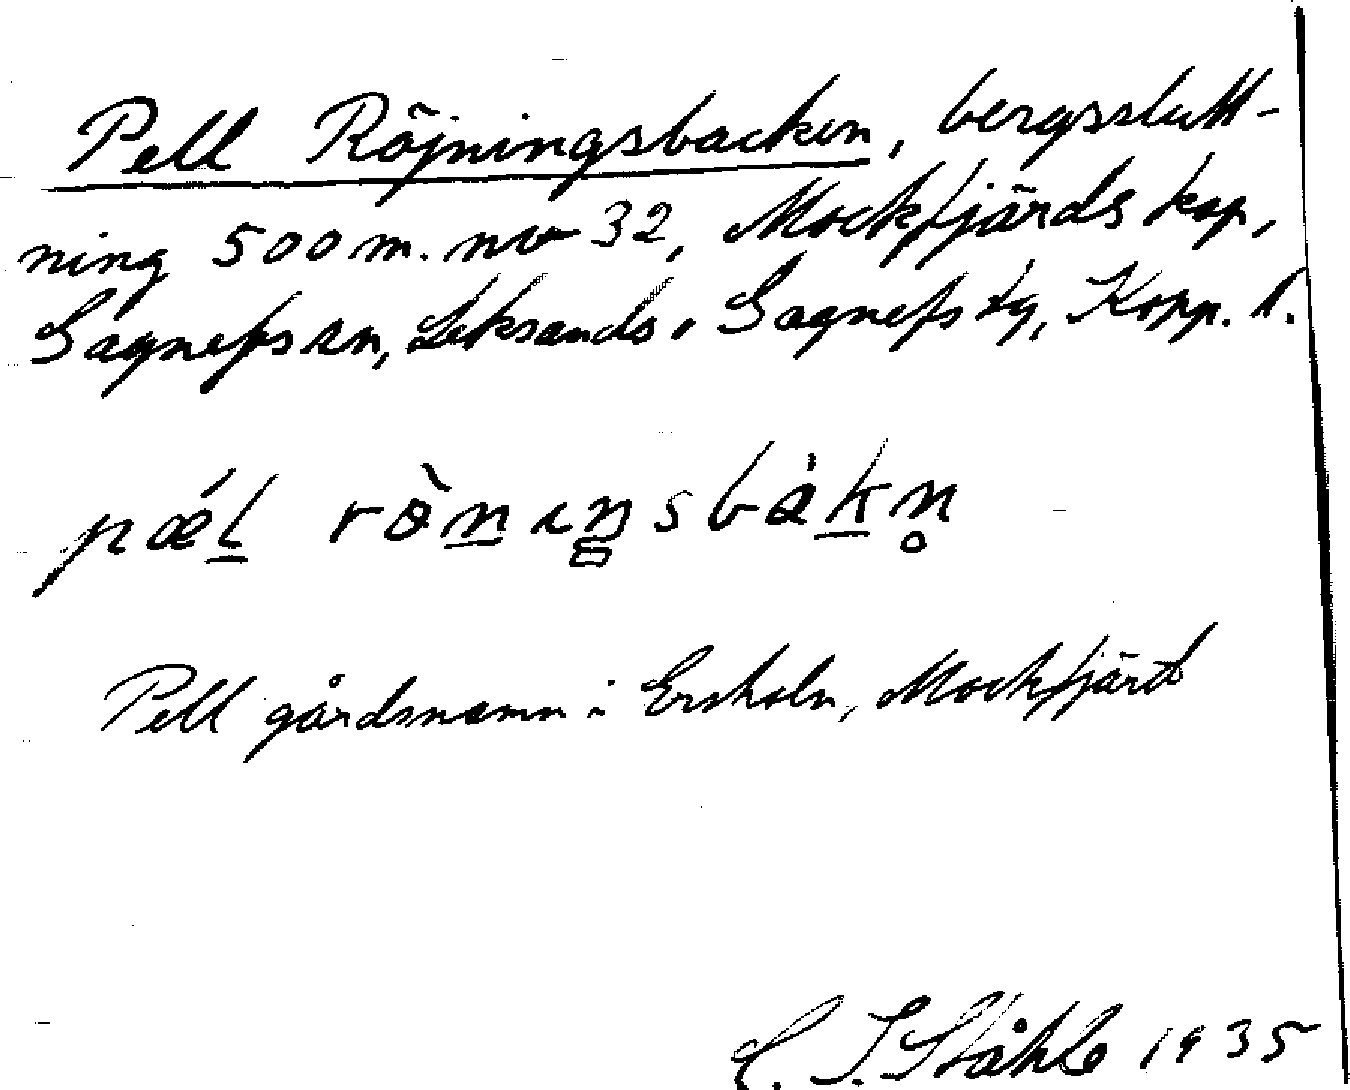 Pell Röjningsbacken, bergsslutt-
ning 500 m. nv 32, Mockfjärds kap,
Gagnefs sn, Leksands o Gagnefs tg, Kopp. l.
pǽl rö̀nıŋsbàkn̥
Pell gårdsnamn i Ersholn, Mockfjärd
C. I. Ståhle 1935